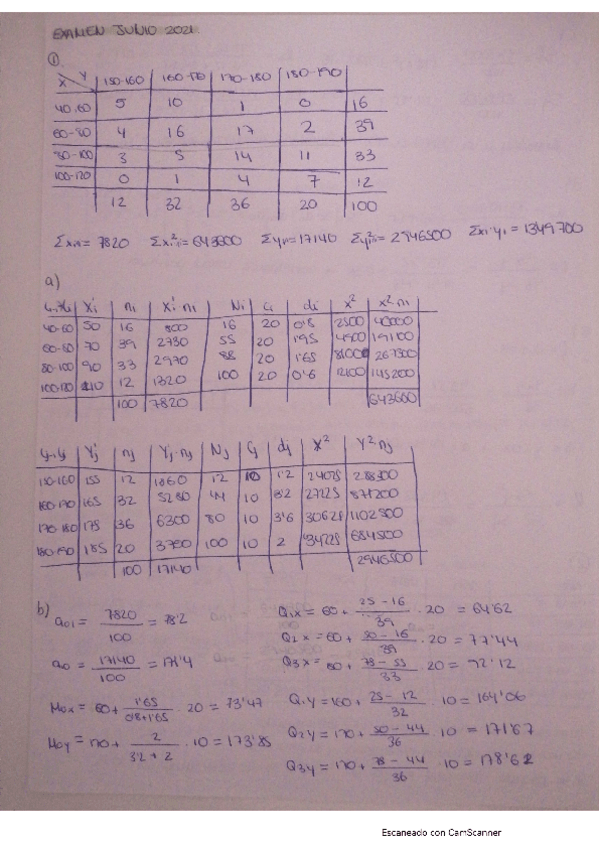 EXAMEN JUNIO 2021.
①.
X \ Y 150-160 160-170 170-180 180-190
40-60 5 10 1 0 16
60-80 4 16 17 2 39
80-100 3 5 14 11 33
100-120 0 1 4 7 12
12 32 36 20 100
Σxini= 7820 Σxi²ni= 643600 Σyini=17140 Σyi²ni= 2946500 Σxi·yi = 1349700
a)
Xi ni Xi·ni Ni Ci di X² X²·ni
40-60 50 16 800 16 20 0'8 2500 40000
60-80 70 39 2730 55 20 1'95 4900 191100
80-100 90 33 2970 88 20 1'65 8100 267300
100-120 110 12 1320 100 20 0'6 12100 145200
100 7820 643600
Yj nj Yj·nj Nj Cj dj X² Y²nj
150-160 155 12 1860 12 10 1'2 24025 288300
160-170 165 32 5280 44 10 3'2 27225 871200
170-180 175 36 6300 80 10 3'6 30625 1102500
180-190 185 20 3700 100 10 2 34225 684500
100 17140 2946500
b) a01 = 7820/100 = 78'2
Q1x = 60 + 25-16/39 · 20 = 64'62
Q2x = 60 + 50-16/39 · 20 = 77'44
a0 = 17140/100 = 171'4
Q3x = 80 + 75-55/33 · 20 = 92'12
Mox = 60+ 1'65/0'8+1'65 · 20 = 73'47
Q1y = 160 + 25-12/32 · 10 = 164'06
Moy = 170+ 2/3'2+2 · 10 = 173'85
Q2y = 170 + 50-44/36 · 10 = 171'67
Q3y = 170 + 75-44/36 · 10 = 178'62
Escaneado con CamScanner